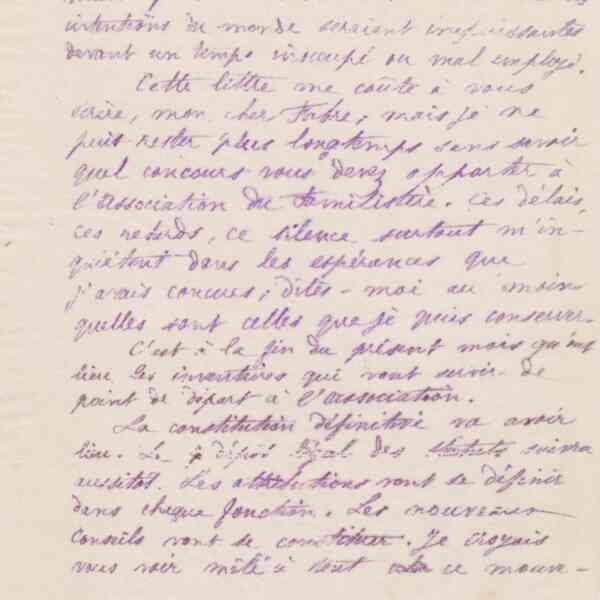 intentions du monde seraient inefficaces
devant un temps inoccupé ou mal employé.
Cette lettre me coûte à vous
écrire, mon cher Fabre, mais je ne
puis rester plus longtemps sans savoir
quel concours vous devez apporter à
l'association du Familistère. Ces délais,
ces retards, ce silence surtout m'in-
quiètent dans les espérances que
j'avais conçues; dites-moi au moins
quelles sont celles que je puis conserver.
C'est à la fin du présent mois qu'ont
lieu les inventaires qui vont servir de
point de départ à l'association.
La constitution définitive va avoir
lieu. Le dépôt légal des statuts suivra
aussitôt. Les attributions vont se définir
dans chaque fonction. Les nouveaux
Conseils vont se constituer. Je croyais
vous voir mêlé à tout ce mouve-